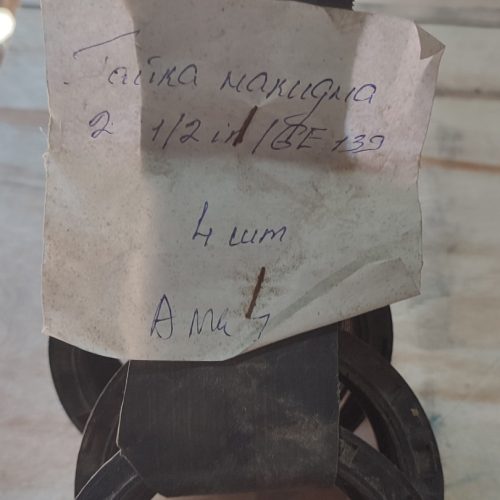 Гайка накидна
2 1/2 in/БЕ 139
4 шт